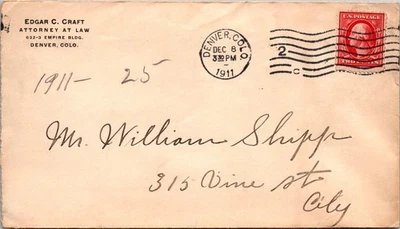 EDGAR C. CRAFT
ATTORNEY AT LAW
632-3 EMPIRE BLDG.
DENVER, COLO.
DENVER, COLO.
DEC 8
3 30 PM
1911
2
C
U.S. POSTAGE
1911- 25
Mr. William Shipp
315 Vine st
City